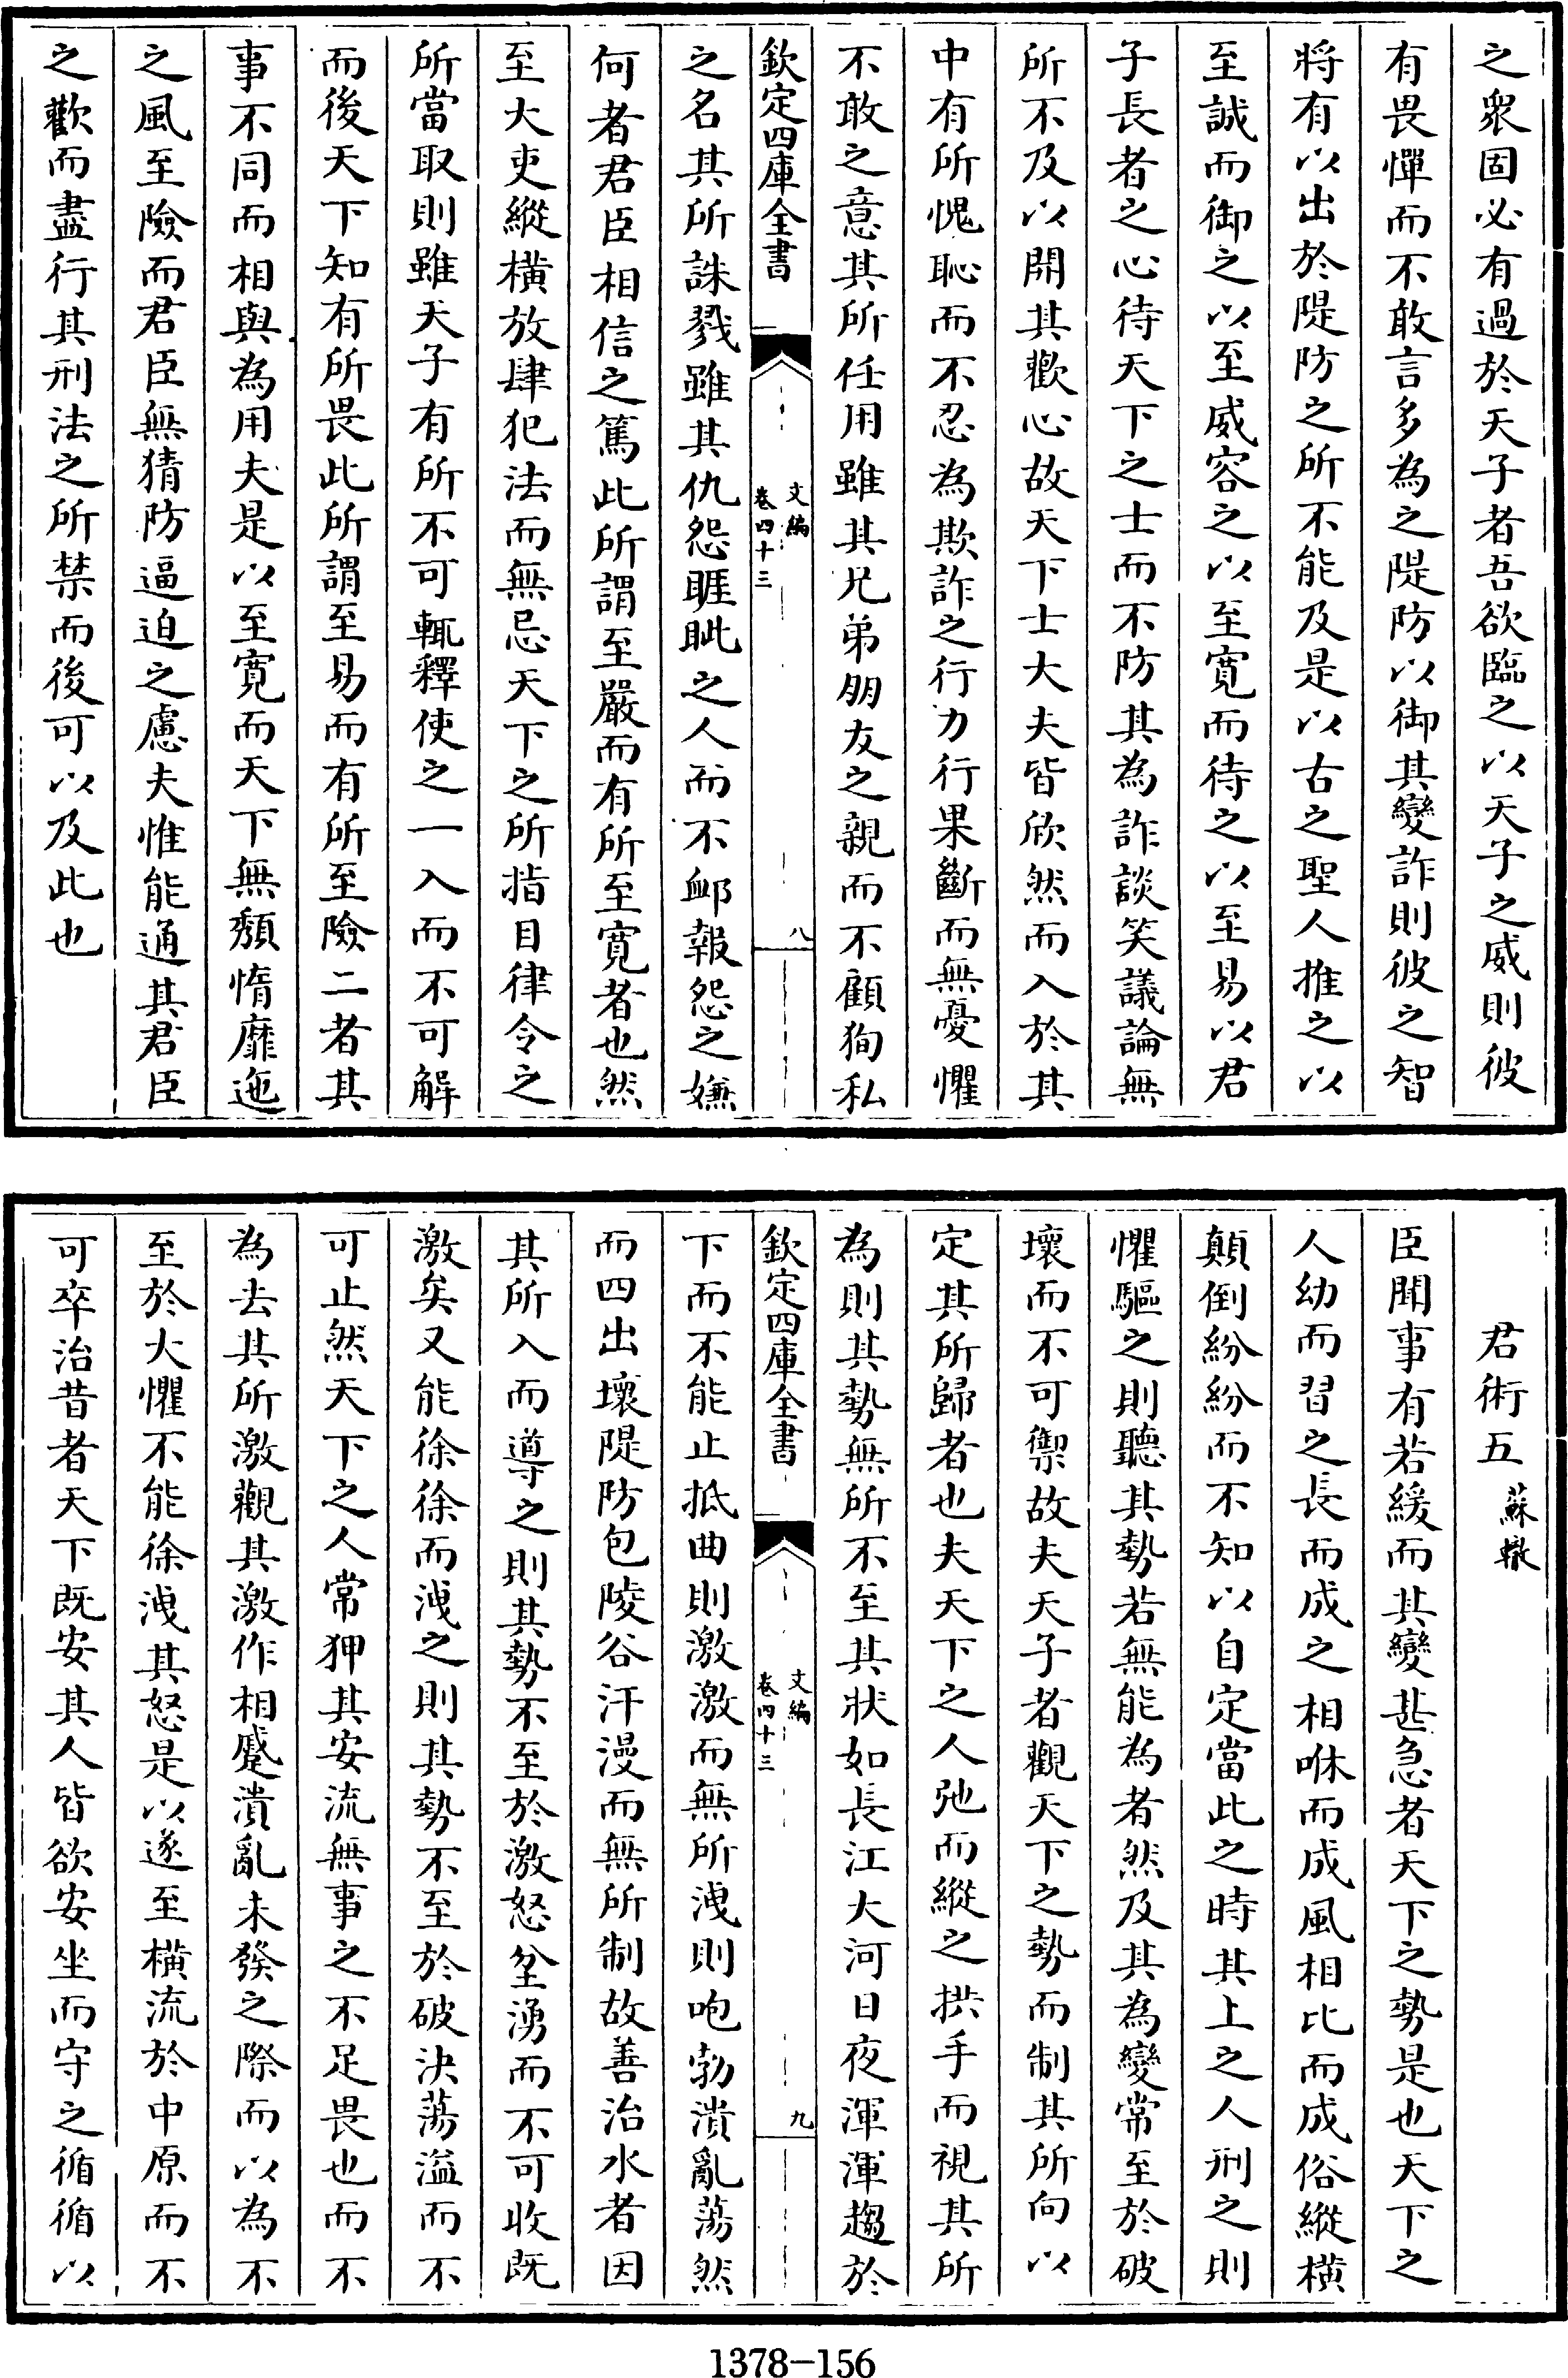 之衆固必有過於天子者吾欲臨之以天子之威則彼
有畏憚而不敢言多為之隄防以御其變詐則彼之智
將有以出於隄防之所不能及是以古之聖人推之以
至誠而御之以至威容之以至寛而待之以至易以君
子長者之心待天下之士而不防其為詐談笑議論無
所不及以開其歡心故天下士大夫皆欣然而入於其
中有所愧恥而不忍為欺詐之行力行果斷而無憂懼
不敢之意其所任用雖其兄弟朋友之親而不顧狥私
欽定四庫全書
文編
卷四十三
八
之名其所誅戮雖其仇怨睚眦之人而不䘏報怨之嫌
何者君臣相信之篤此所謂至嚴而有所至寛者也然
至大吏縱橫放肆犯法而無忌天下之所指目律令之
所當取則雖天子有所不可輒釋使之一入而不可解
而後天下知有所畏此所謂至易而有所至險二者其
事不同而相與為用夫是以至寛而天下無頽惰靡迤
之風至險而君臣無猜防逼迫之慮夫惟能通其君臣
之歡而盡行其刑法之所禁而後可以及此也
君術五 蘇轍
臣聞事有若緩而其變甚急者天下之勢是也天下之
人幼而習之長而成之相咻而成風相比而成俗縱橫
顛倒紛紛而不知以自定當此之時其上之人刑之則
懼驅之則聽其勢若無能為者然及其為變常至於破
壞而不可禦故夫天子者觀天下之勢而制其所向以
定其所歸者也夫天下之人弛而縱之拱手而視其所
為則其勢無所不至其狀如長江大河日夜渾渾趨於
欽定四庫全書
文編
卷四十三
九
下而不能止抵曲則激激而無所洩則咆勃潰亂蕩然
而四出壞隄防包陵谷汗漫而無所制故善治水者因
其所入而導之則其勢不至於激怒坌湧而不可收既
激矣又能徐徐而洩之則其勢不至於破決蕩溢而不
可止然天下之人常狎其安流無事之不足畏也而不
為去其所激觀其激作相蹙潰亂未發之際而以為不
至於大懼不能徐洩其怒是以遂至橫流於中原而不
可卒治昔者天下既安其人皆欲安坐而守之循循以
1378-156